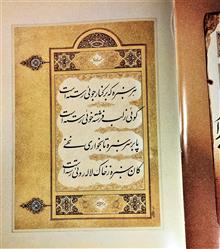 هر سبزه که بر کنار جویی رسته است
گویی ز لب فرشته خویی رسته است
پا بر سر سبزه تا بخواری ننهی
کان سبزه ز خاک لاله رویی رسته است